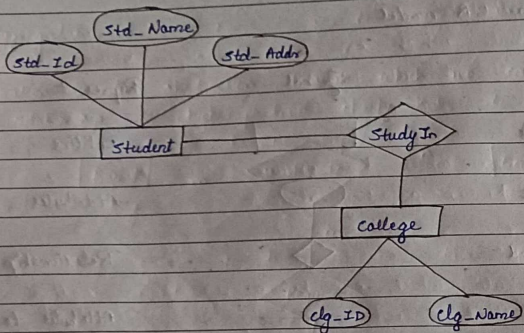 Std_Name
Std_Id
Std_Addr
Student
Study In
College
Clg_ID
Clg_Name